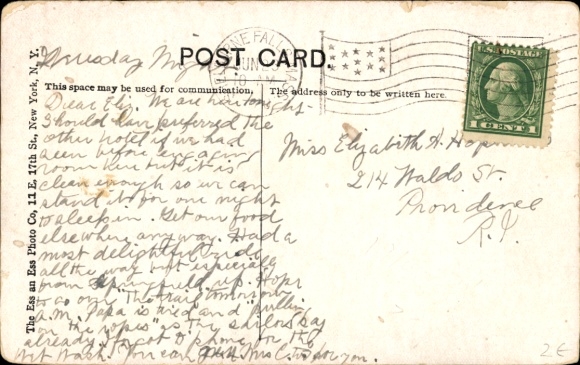 POST CARD.
This space may be used for communication,
The address only to be written here.
The Ess an Ess Photo Co, 11 E. 17th St., New York, N. Y.
FALLS
JUN
10 AM
U.S. POSTAGE
1 CENT 1
Dear Eliz. We are here tonight
Should have preferred the
other hotel if we had
seen before engaging
room here but it is
clean enough so we can
stand it for one night
to sleep in. Get our food
elsewhere anyway. Had a
most delightful ride
all the way but especially
from Springfield up. Hope
to go over "the trail" tomorrow
a.m. Papa is tired and "pulling
on the ropes" as the sailors say
already. Forgot to phone for the
Wet Wash. You can Mrs C. to for you.
Miss Elizabeth A.
214 Waldo St.
Providence
R.I.
2E